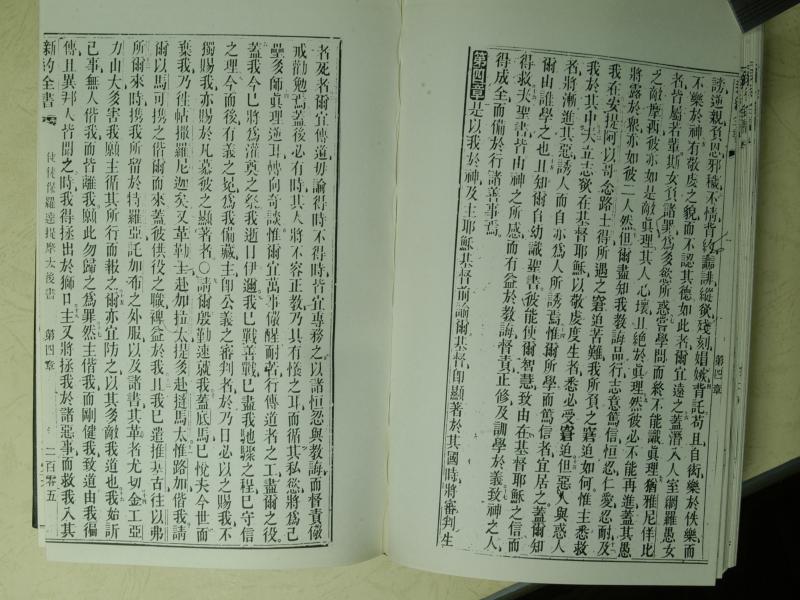 第四章
謗逆親負恩邪穢不情背約讒誹縱慾殘刻娼嫉背託苟且自衒樂於佚樂而
不樂於神有敬虔之貌而不認其德如此者爾宜遠之蓋潛入人室網羅愚女
者皆屬若輩斯女負諸罪為多慾所惑嘗學問而終不能識真理猶雅尼佯比
之敵摩西彼亦如是敵真理其人心壞且絕於真理然彼必不能再進蓋其愚
將露於衆亦如彼二人然但爾盡知我教誨品行志意篤信恒忍仁愛忍耐及
我在安提阿以哥念路士得所遇之窘迫苦難我所負之窘迫如何惟主悉救
我於其中夫立志欲在基督耶穌以敬虔度生者悉必受窘迫但惡人與惑人
者將漸進其惡誘人而自亦為人所誘焉惟爾所學而篤信者宜居之蓋爾知
爾由誰學之也且知爾自幼識聖書彼能使爾智慧致由在基督耶穌之信而
得救夫聖書皆由神之所感而有益於教誨督責正修及訓學於義致神之人
得成全而備於行諸善事焉
第四章是以我於神及主耶穌基督前諭爾基督卽顯著於其國時將審判生
者死者爾宜傳道毋論得時不得時皆宜專務之以諸恒忍與教誨而督責儆
戒勸勉焉蓋後必有時其人將不容正教乃具有慅之耳而循其私慾將為己
壘多師眞理逆耳轉向奇談惟爾宜萬事儆醒耐苦行傳道者之工盡爾之役
蓋我今已將為灌奠之祭我逝日伊邇我已戰善戰已盡我馳驟之程已守信
之理今而後有義之冕為我備藏主卽公義之審判者於乃日必以之賜我不
獨賜我亦賜於凡慕彼之顯著者○請爾殷勤速就我蓋底馬已悅夫今世而
棄我乃往帖撒羅尼迦矣又革勒士赴加拉太提多赴撻馬太惟路加偕我請
爾以馬可攜之偕爾而來蓋彼供役之職裨益於我且我已遣推基古往以弗
所爾來時攜我所留於特羅亞託加布之外服以及諸書其革者尤切金工亞
力山大多害我願主循其所行而報之爾亦宜防之以其多敵我道也我始訴
己事無人偕我而皆離我願此勿歸之為罪然主偕我而剛健我致道由我徧
傳且異邦人皆聞之時我得拯出於獅口主又將拯我於諸惡事而救我入其
新約全書 使徒保羅達提摩太後書 第四章 二百零五